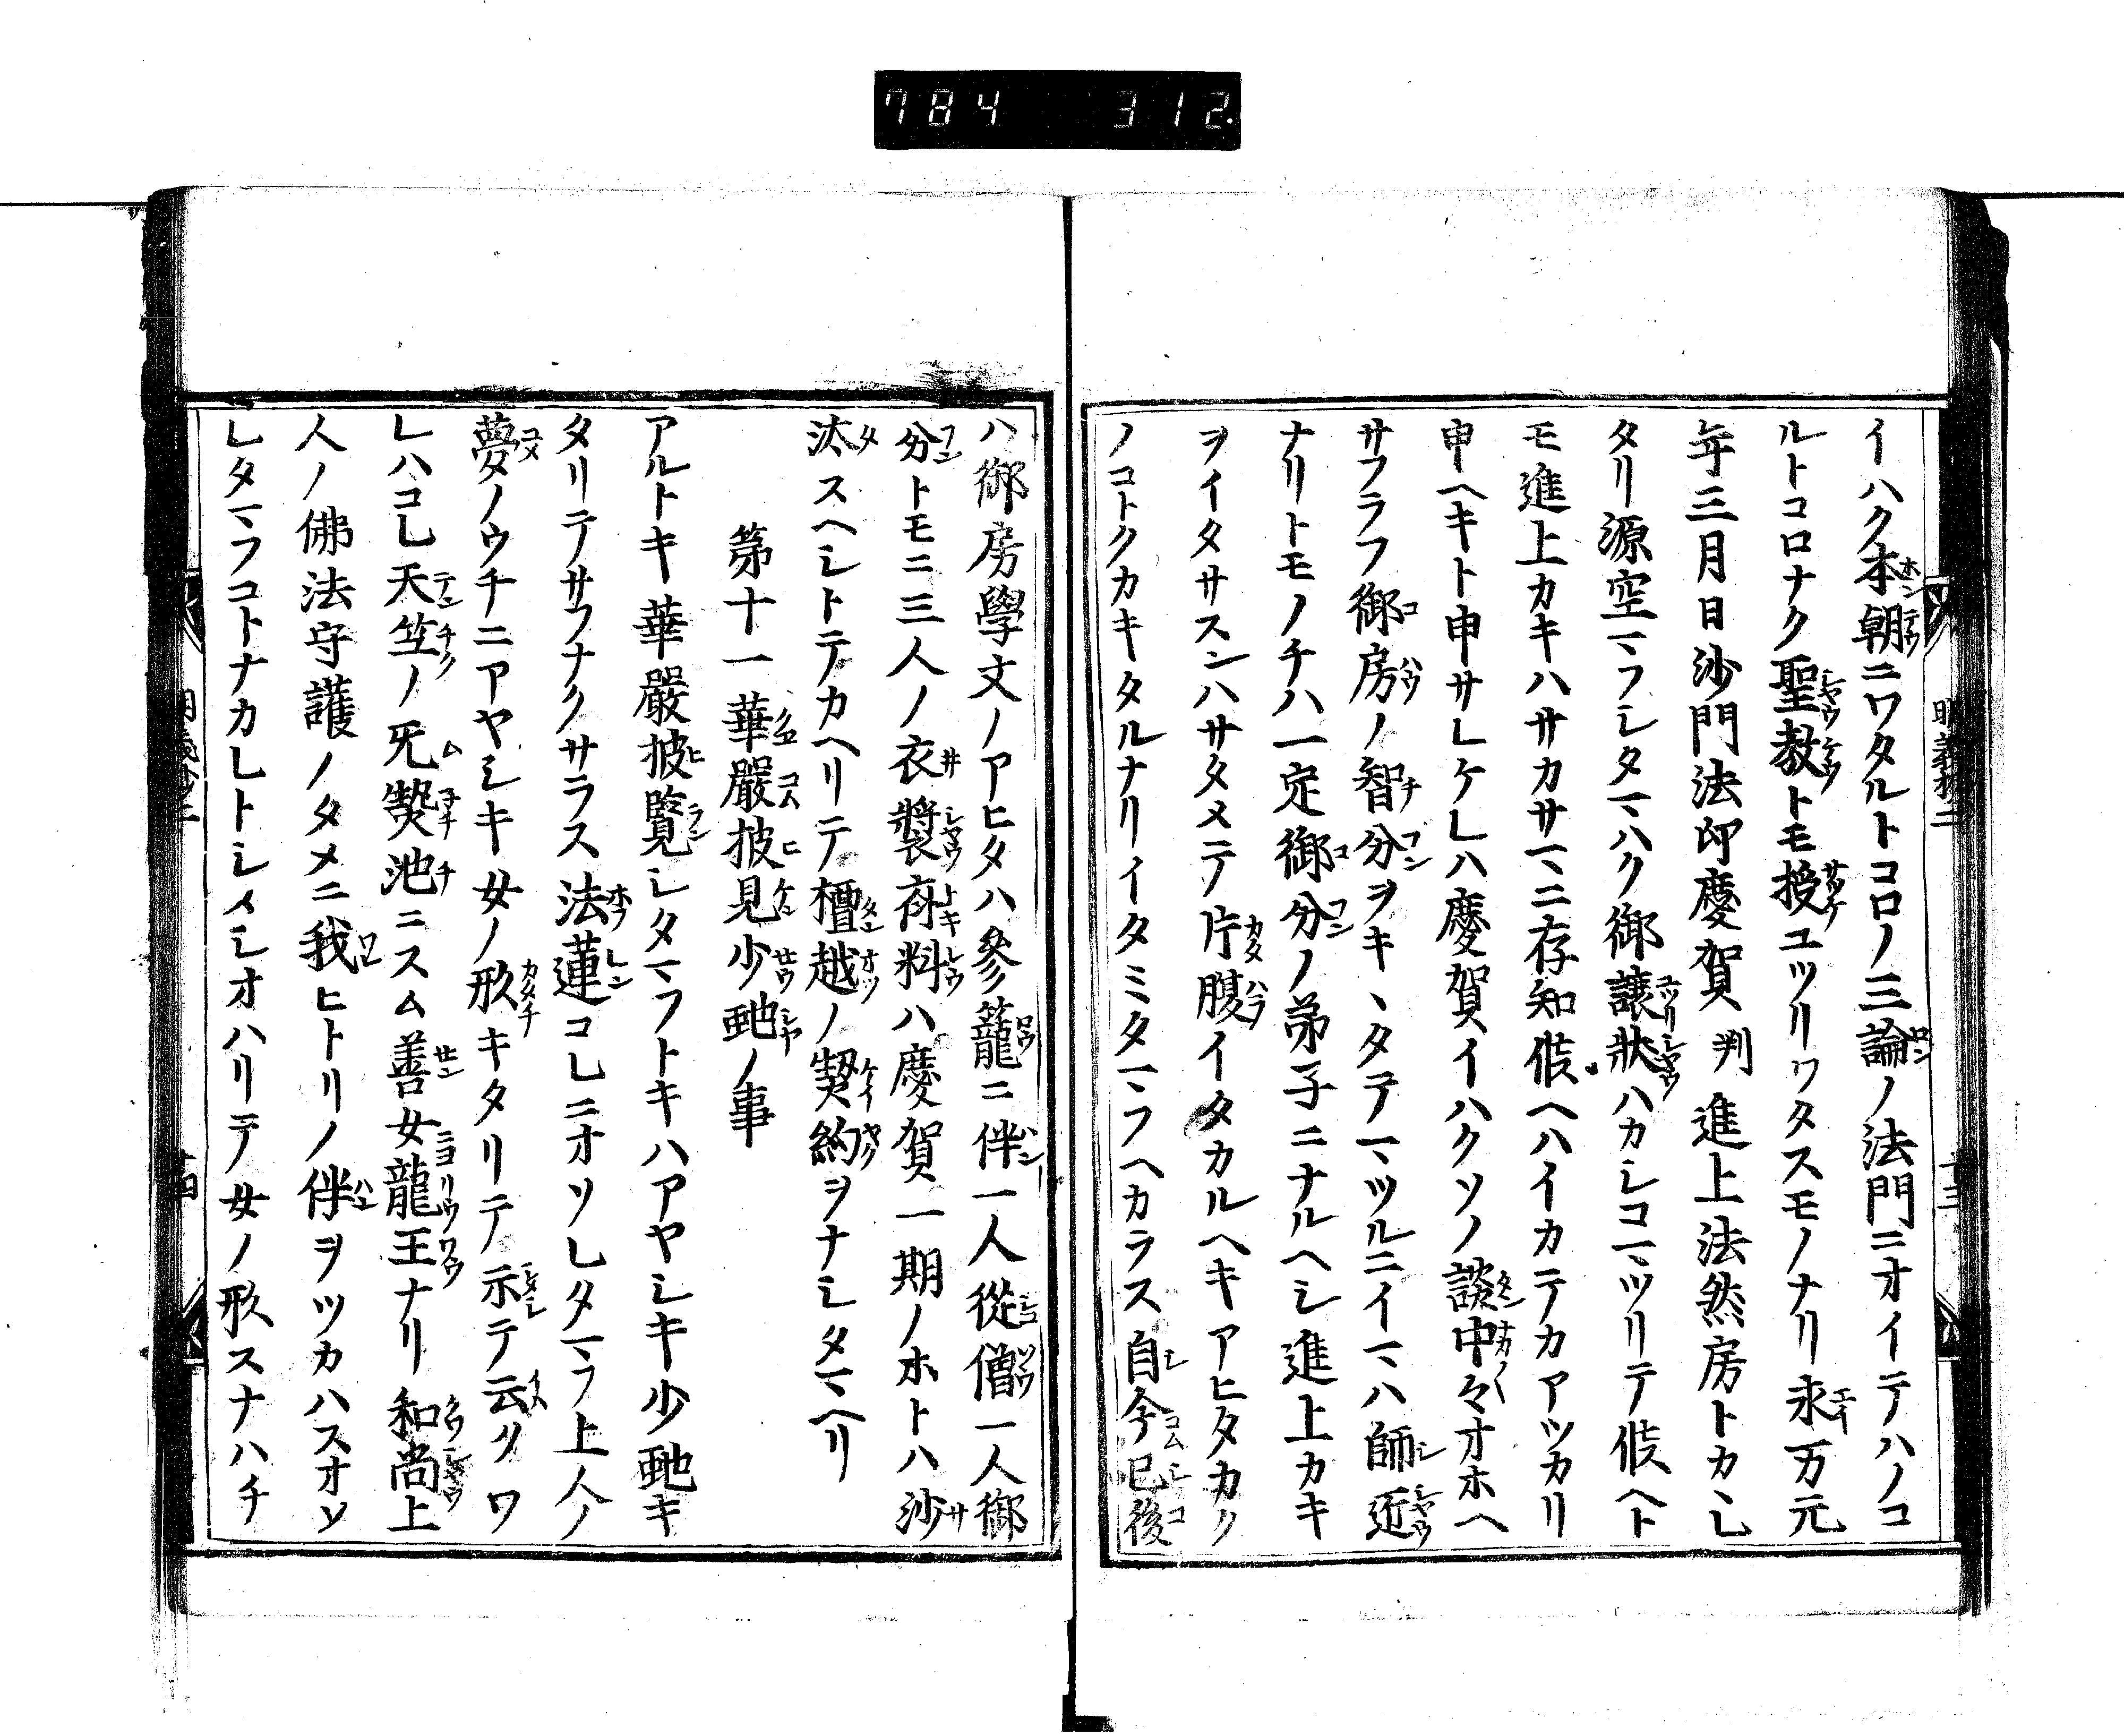 784 312.
イハク本朝ニワタルトコロノ三論ノ法門ニオイテハノコ
ルトコロナク聖教トモ授ユツリワタスモノナリ永万元
年三月日沙門法印慶賀判進上法然房トカヽレ
タリ源空マフシタマハク御譲狀ハカシコマツリテ候ヘト
モ進上カキハサカサマニ存知候ヘハイカテカアツカリ
申ヘキト申サレケレハ慶賀イハクソノ談中々オホヘ
サフラフ御房ノ智分ヲキヽタテマツルニイマハ師迊
ナリトモノチハ一定御分ノ弟子ニナルヘシ進上カキ
ヲイタサスンハサタメテ片腹イタカルヘキアヒタカク
ノコトクカキタルナリイタミタマフヘカラス自今已後
ハ御房學文ノアヒタハ參籠ニ伴一人從僧一人御
分トモニ三人ノ衣裝斎料ハ慶賀一期ノホトハ沙
汰スヘシトテカヘリテ檀越ノ契約ヲナシタマヘリ
第十一華嚴披見少虵ノ事
アルトキ華嚴披覽シタマフトキハアヤシキ少虵キ
タリテサフナクサラス法蓮コレニオソレタマフ上人ノ
夢ノウチニアヤシキ女ノ形キタリテ示テ云クワ
レハコレ天竺ノ无𤍠池ニスム善女龍王ナリ和尚上
人ノ佛法守護ノタメニ我ヒトリノ伴ヲツカハスオソ
レタマフコトナカレトシメシオハリテ女ノ形スナハチ